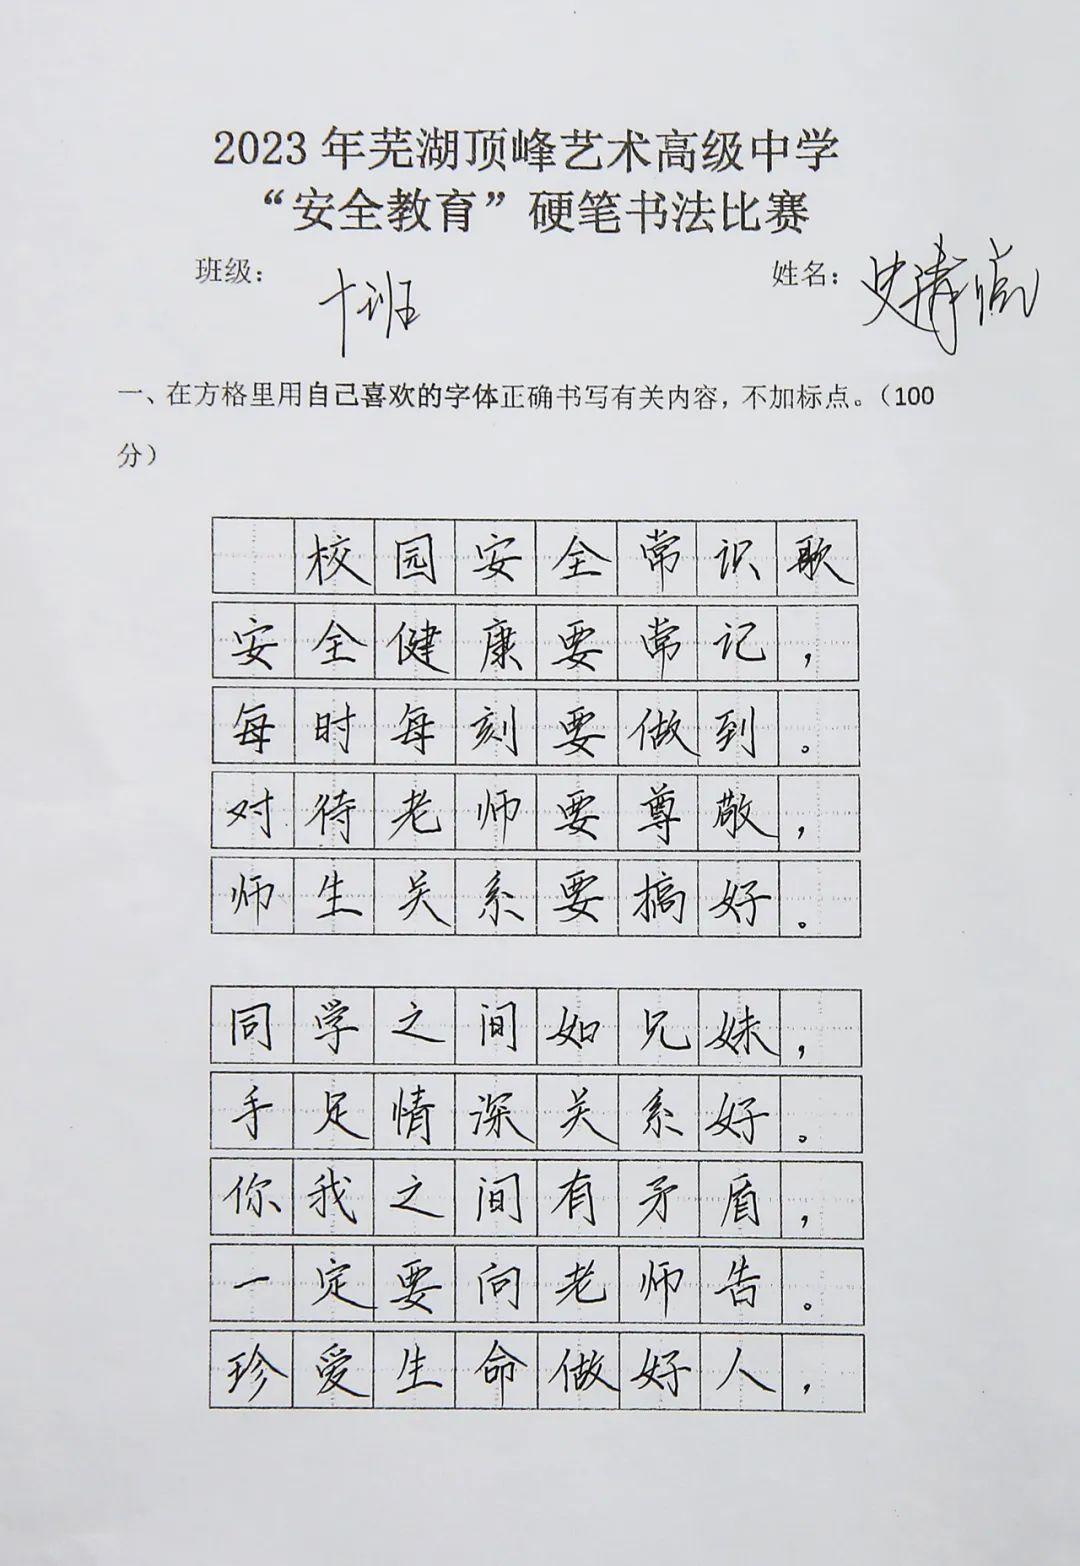 2023年芜湖顶峰艺术高级中学
“安全教育”硬笔书法比赛
班级： 十班 姓名： 史
一、在方格里用自己喜欢的字体正确书写有关内容，不加标点。（100
分）
校园安全常识歌
安全健康要常记，
每时每刻要做到。
对待老师要尊敬，
师生关系要搞好。
同学之间如兄妹，
手足情深关系好。
你我之间有矛盾，
一定要向老师告。
珍爱生命做好人，